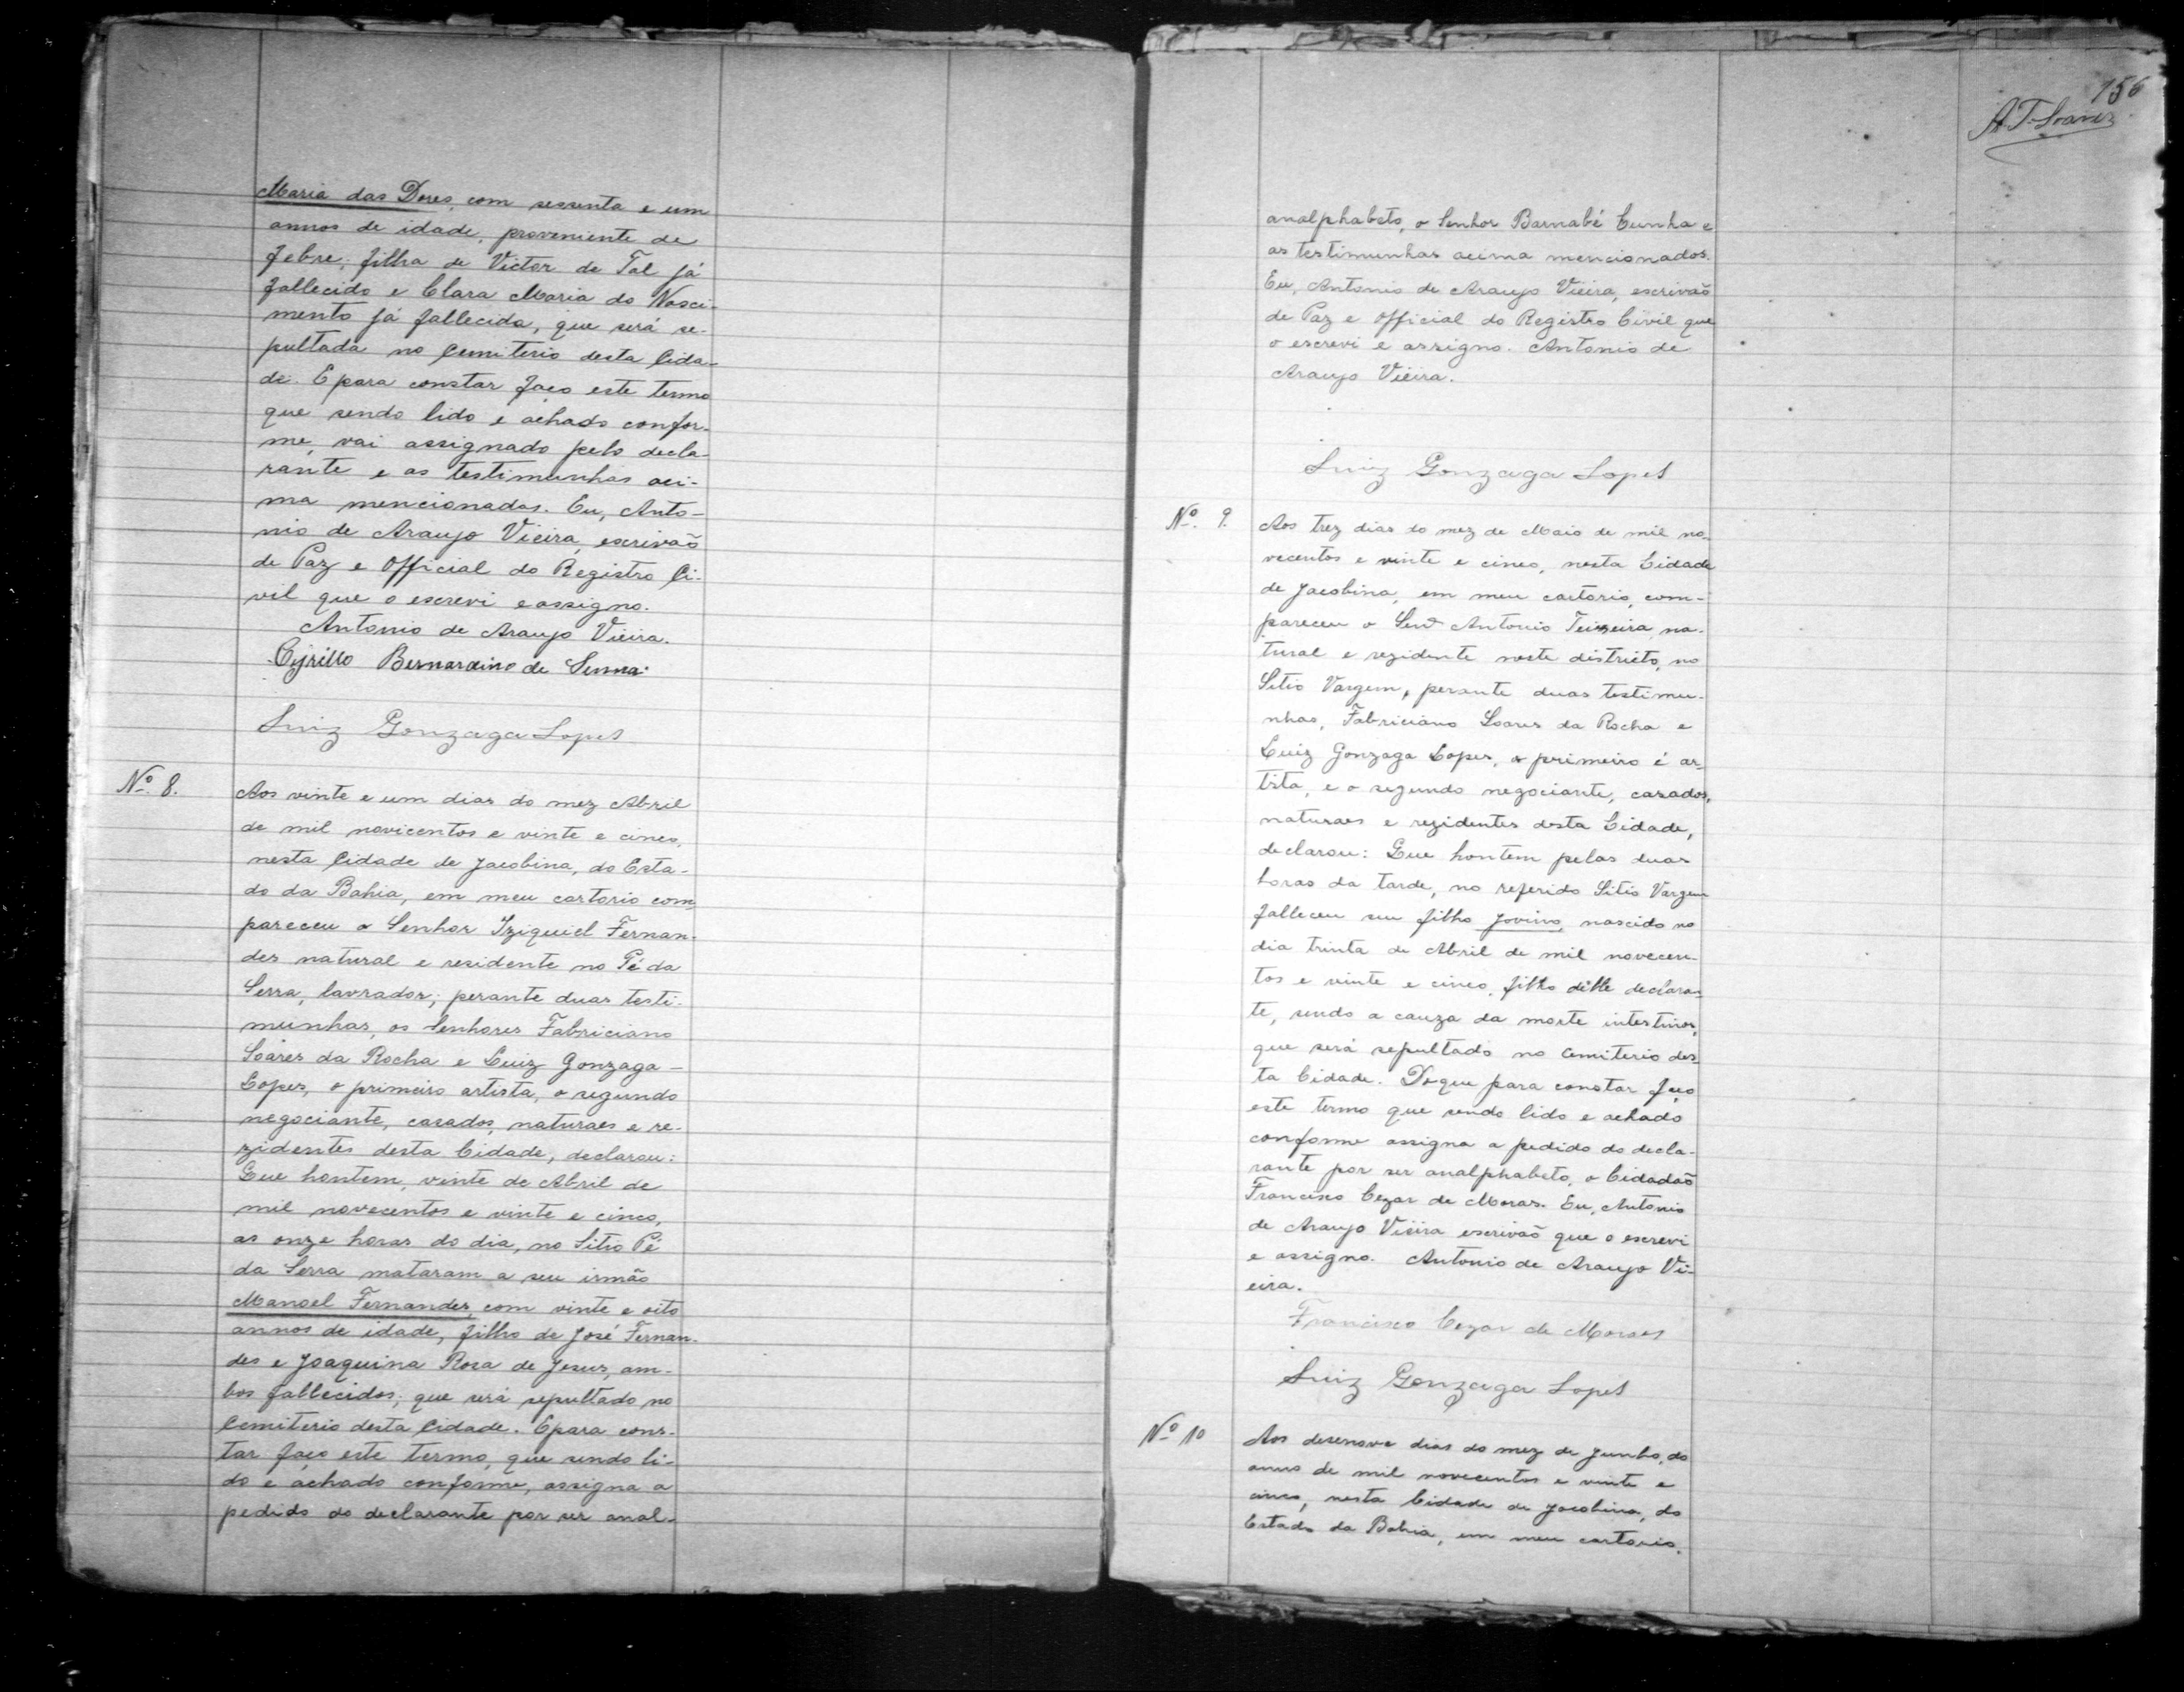 Maria das Dores, com sessenta e um
annos de idade, proveniente de
febre; filha de Victor de Tal já
fallecido e Clara Maria do Nasci-
mento já fallecida, que será se-
pultada no Cemiterio desta Cida-
de. E para constar faço este termo
que sendo lido e achado confor-
me, vai assignado pelo decla-
rante e as testimunhas aci-
ma mencionadas. Eu, Anto-
nio de Araujo Vieira, escrivaõ
de Paz e Official do Registro Ci-
vil que o escrevi e assigno.
Antonio de Araujo Vieira.
Cyrillo Bernardino de Senna.
Luiz Gonzaga Lopes
Nº. 8.
Aos vinte e um dias do mez Abril
de mil novicentos e vinte e cinco,
nesta Cidade de Jacobina, do Esta-
do da Bahia, em meu cartorio com-
pareceu o Senhor Iziquiel Fernan-
des natural e residente no Pé da
Serra, lavrador; perante duas testi-
munhas, os Senhores Fabriciano
Soares da Rocha e Luiz Gonzaga-
Lopes, o primeiro artista, o segundo
negociante, casados, naturaes e re-
zidentes desta Cidade, declarou:
Que hontem, vinte de Abril de
mil novecentos e vinte e cinco,
as onze horas do dia, no Sitio Pé
da Serra mataram a seu irmão
Manoel Fernandes, com vinte e oito
annos de idade, filho de José Fernan-
des e Joaquina Rosa de Jesus, am-
bos fallecidos; que será sepultado no
Cemiterio desta Cidade. E para cons-
tar faço este termo, que sendo li-
do e achado conforme, assigna a
pedido do declarante por ser anal-
156
A. T. Soares
analphabeto, o Senhor Barnabé Cunha e
as testimunhas acima mencionados.
Eu, Antonio de Araujo Vieira, escrivaõ
de Paz e Official do Registro Civil que
o escrevi e assigno. Antonio de
Araujo Vieira.
Luiz Gonzaga Lopes
Nº. 9.
Aos trez dias do mez de Maio de mil no-
vecentos e vinte e cinco, nesta Cidade
de Jacobina, em meu cartorio, com-
pareceu o Senr Antonio Teixeira, na-
tural e rezidente neste districto, no
Sitio Vargem, perante duas testimu-
nhas, Fabriciano Soares da Rocha e
Luiz Gonzaga Lopes, o primeiro é ar-
tista, e o segundo negociante, casados,
naturaes e rezidentes desta Cidade,
declarou: Que hontem pelas duas
horas da tarde, no referido Sitio Vargem
falleceu seu filho Jovino, nascido no
dia trinta de Abril de mil novecen-
tos e vinte e cinco, filho délle declaran-
te, sendo a cauza da morte intestinos,
que será sepultado no Cemiterio des-
ta Cidade. Do que para constar faço
este termo que sendo lido e achado
conforme assigna a pedido do decla-
rante por ser analphabeto, o Cidadaõ
Francisco Cezar de Moras. Eu, Antonio
de Araujo Vieira escrivaõ que o escrevi
e assigno. Antonio de Araujo Vi-
eira.
Francisco Cezar de Moraes
Luiz Gonzaga Lopes
Nº 10
Aos desenove dias do mez de Junho, do
anno de mil novecentos e vinte e
cinco, nesta Cidade de Jacobina, do
Estado da Bahia, em meu cartorio,